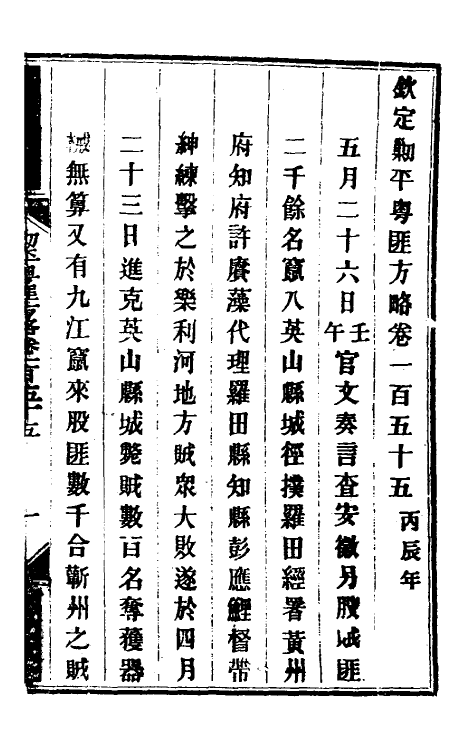 欽定勦平粵匪方略卷一百五十五 丙辰年
五月二十六日壬午官文奏言查安徽另股賊匪
二千餘名竄入英山縣城徑撲羅田經署黃州
府知府許賡藻代理羅田縣知縣彭應鯉督帶
紳練擊之於樂利河地方賊衆大敗遂於四月
二十三日進克英山縣城斃賊數百名奪獲器
械無算又有九江竄來股匪數千合蘄州之賊
勦平粵匪方略卷一百五十五
一